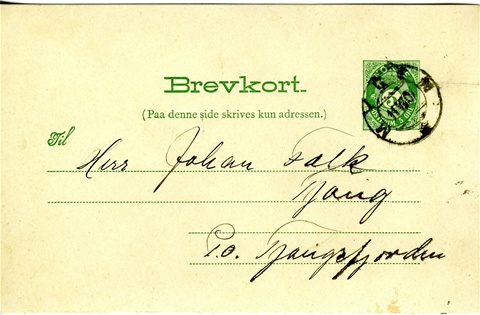 Brevkort.
(Paa denne side skrives kun adressen.)
Til
Herr Johan Falk
Tjong
P.o. Tjongsfjorden